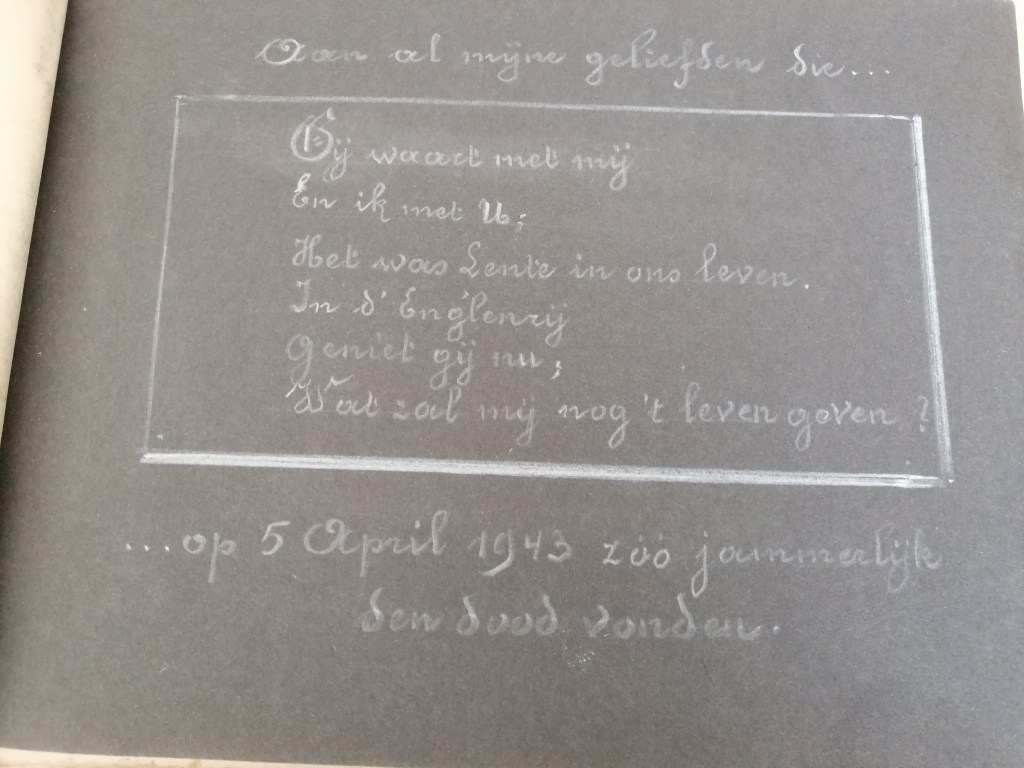 Aan al mijne geliefden die....
Gij waart met mij
En ik met U;
Het was Lente in ons leven.
In d' Eng'lenrij
Geniet gij nu;
Wat zal mij nog 't leven geven?
...op 5 April 1943 zóó jammerlijk
den dood vonden.